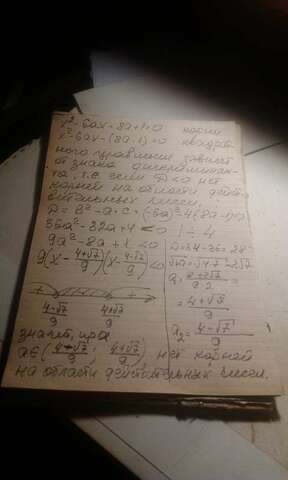 x²-6ax-8a+1=0 корни
x²-6ax-(8a-1)=0 квадрат-
ного уравнения зависят
от знака дискриминан-
та, т.е. если D<0 нет
корней на области дейст-
вительных чисел.
36a²-32a+4<0 | : 4
9a²-8a+1<0
D=64-36=28
9(x-(4+√7)/9)(x-(4-√7)/9)<0
√D=√4·7=2√7
a₁=(8+2√7)/(9·2)=
=(4+√7)/9
(4-√7)/9 (4+√7)/9
a₂=(4-√7)/9
значит, при
a∈((4-√7)/9; (4+√7)/9) нет корней
на области действительных чисел.